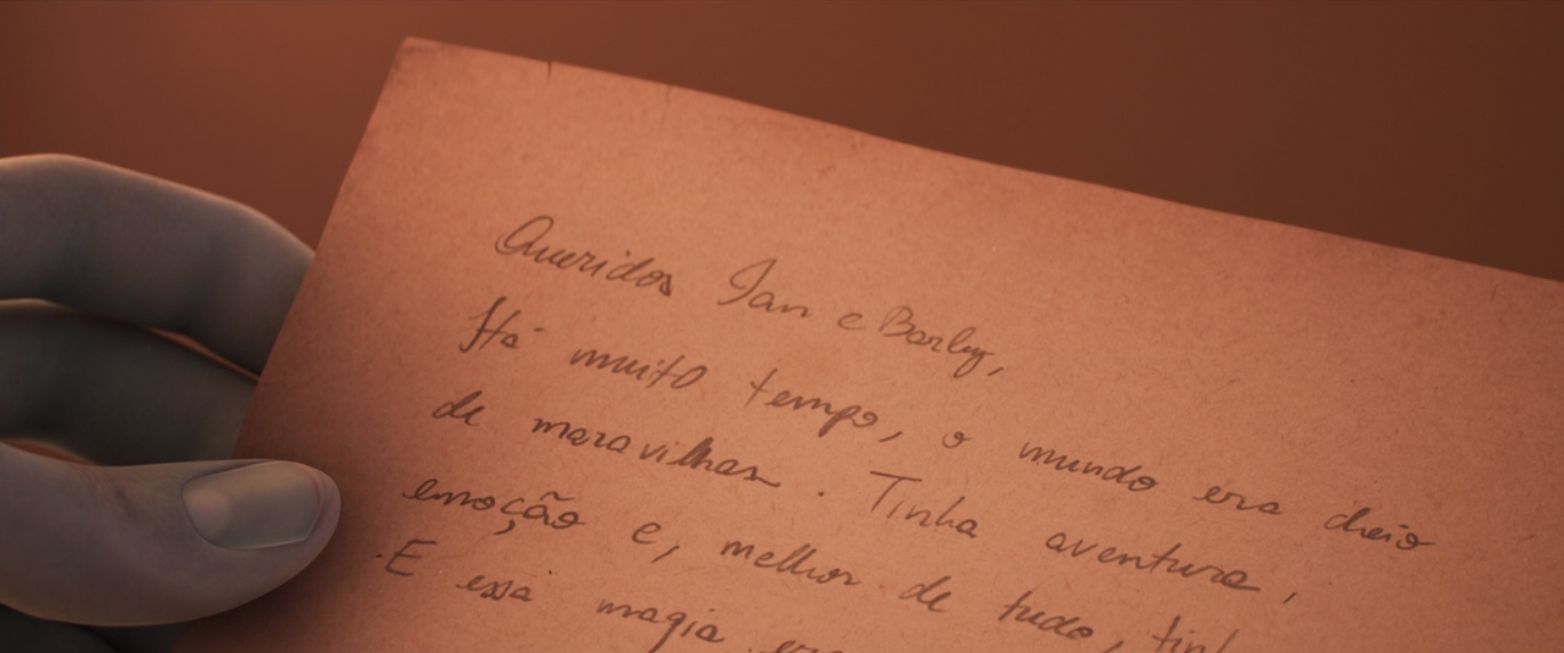 Queridos Ian e Barley,
Há muito tempo, o mundo era cheio
de maravilhas. Tinha aventura,
emoção e, melhor de tudo,
E essa magia